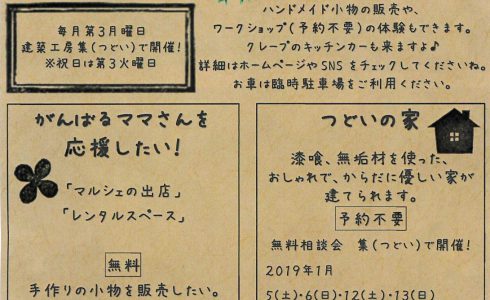 毎月第３月曜日
建築工房集(つどい)で開催!
※祝日は第３火曜日
ハンドメイド小物の販売や、
ワークショップ(予約不要)の体験もできます。
クレープのキッチンカーも来ますよ♪
詳細はホームページやSNSをチェックしてくださいね。
お車は臨時駐車場をご利用ください。
がんばるママさんを
応援したい!
「マルシェの出店」
「レンタルスペース」
無料
手作りの小物を販売したい。
つどいの家
漆喰、無垢材を使った、
おしゃれで、からだに優しい家が
建てられます。
予約不要
無料相談会 集(つどい)で開催!
2019年1月
5(土)・6(日)・12(土)・13(日)